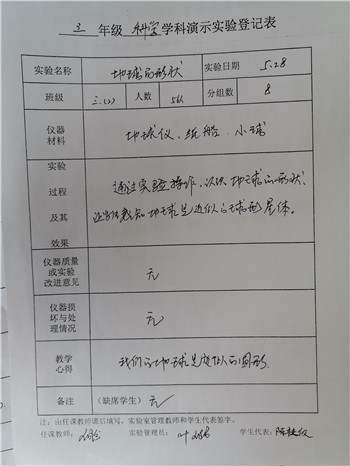 三 年级 科学 学科演示实验登记表
实验名称 地球的形状 实验日期 5.28
班级 三.(1) 人数 56 分组数 8
仪器
材料 地球仪、纸船、小球
实验
过程 通过实验操作、认识地球的形状、
及其 地球是近似的球形星体。
效果
仪器质量
或实验
改进意见 无
仪器损
坏与处
理情况 无
教学
心得 我们的地球是近似的圆形.
备注 (缺席学生) 无
注：由任课教师课后填写，实验室管理教师和学生代表签字。
任课教师： 实验管理员： 叶 学生代表：陈